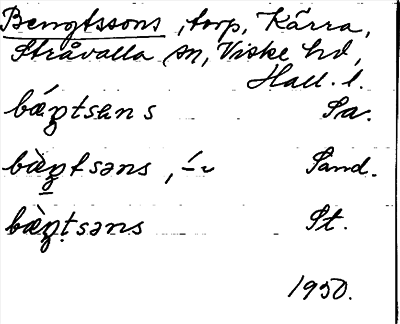 Bengtssons, torp, Kärra,
Stråvalla sn, Viske hd,
Hall. l.
bǽn̡tsəns Sa.
bæ̀n̡tsəns, ́-̀ Sand.
bæ̀n̡tsəns St.
1950.